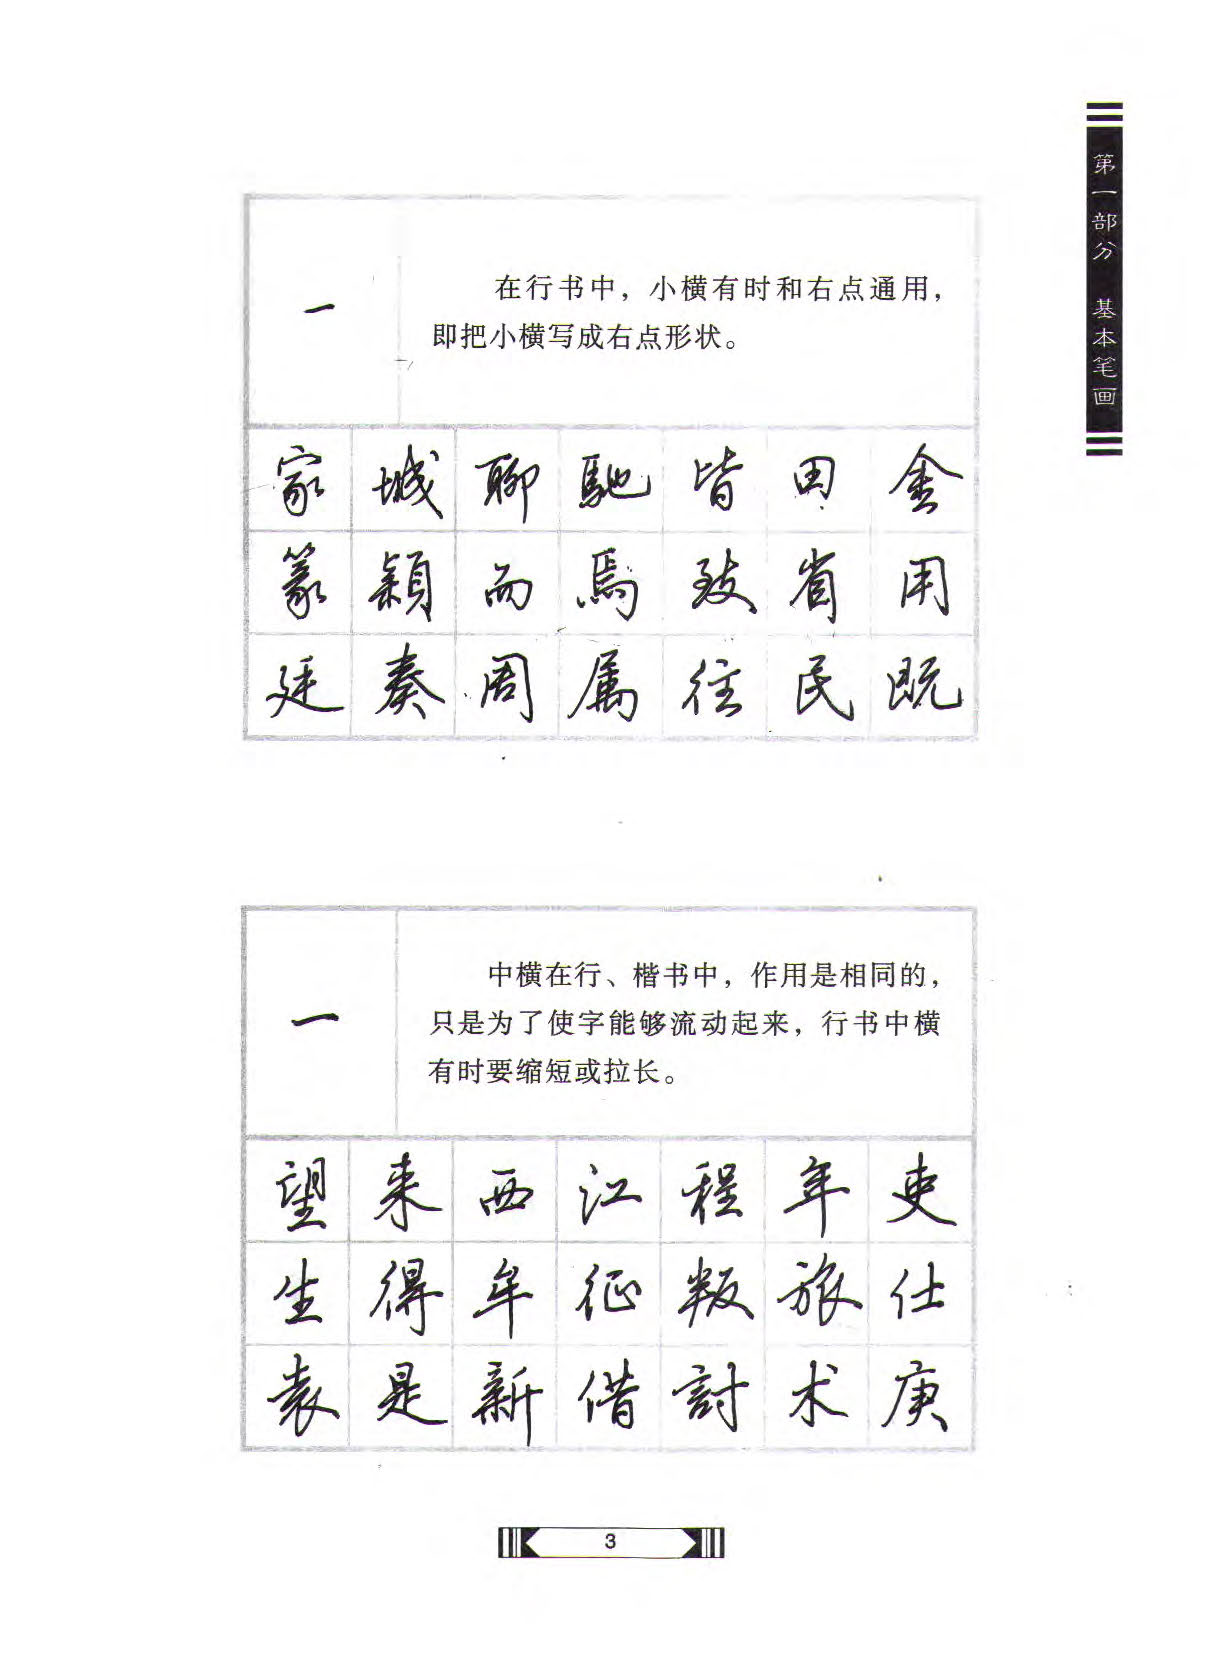 第一部分 基本笔画
一
在行书中，小横有时和右点通用，
即把小横写成右点形状。
家 城 聊 馳 皆 田 金
篆 颖 而 焉 致 省 用
廷 奏 周 属 往 民 既
一
中横在行、楷书中，作用是相同的，
只是为了使字能够流动起来，行书中横
有时要缩短或拉长。
望 来 西 江 程 年 吏
生 得 牟 征 叛 旅 仕
袁 是 新 借 討 术 庚
3